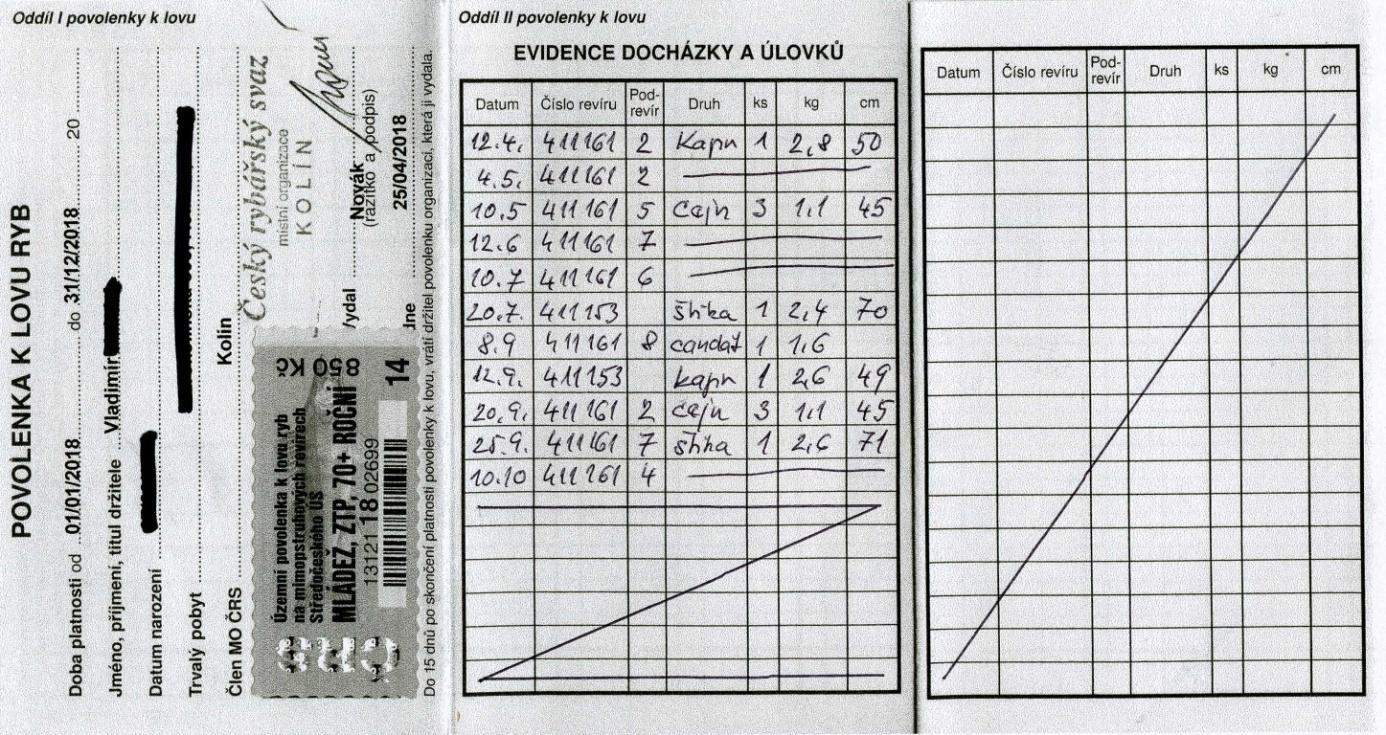 Oddíl I povolenky k lovu
POVOLENKA K LOVU RYB
Doba platnosti od 01/01/2018 do 31/12/2018 20
Jméno, příjmení, titul držitele Vladimír
Datum narození
Trvalý pobyt
Člen MO ČRS Kolín
Český rybářský svaz
místní organizace
KOLÍN
Novák
(razítko a podpis)
25/04/2018
850 Kč
Územní povolenka k lovu ryb
na mimopstruhových revírech
Středočeského ÚS
MLÁDEŽ, ZTP, 70+ ROČNÍ
13121 18 02699
14
Do 15 dnů po skončení platnosti povolenky k lovu, vrátí držitel povolenku organizaci, která ji vydala.
Oddíl II povolenky k lovu
EVIDENCE DOCHÁZKY A ÚLOVKŮ
Datum Číslo revíru Pod-revír Druh ks kg cm
12.4. 411161 2 Kapr 1 2,8 50
4.5. 411161 2
10.5 411161 5 cejn 3 1,1 45
12.6 411161 7
10.7 411161 6
20.7. 411153 štika 1 2,4 70
8.9 411161 8 candát 1 1,6
12.9. 411153 kapr 1 2,6 49
20.9. 411161 2 cejn 3 1,1 45
25.9. 411161 7 štika 1 2,6 71
10.10 411161 4
Datum Číslo revíru Pod-revír Druh ks kg cm